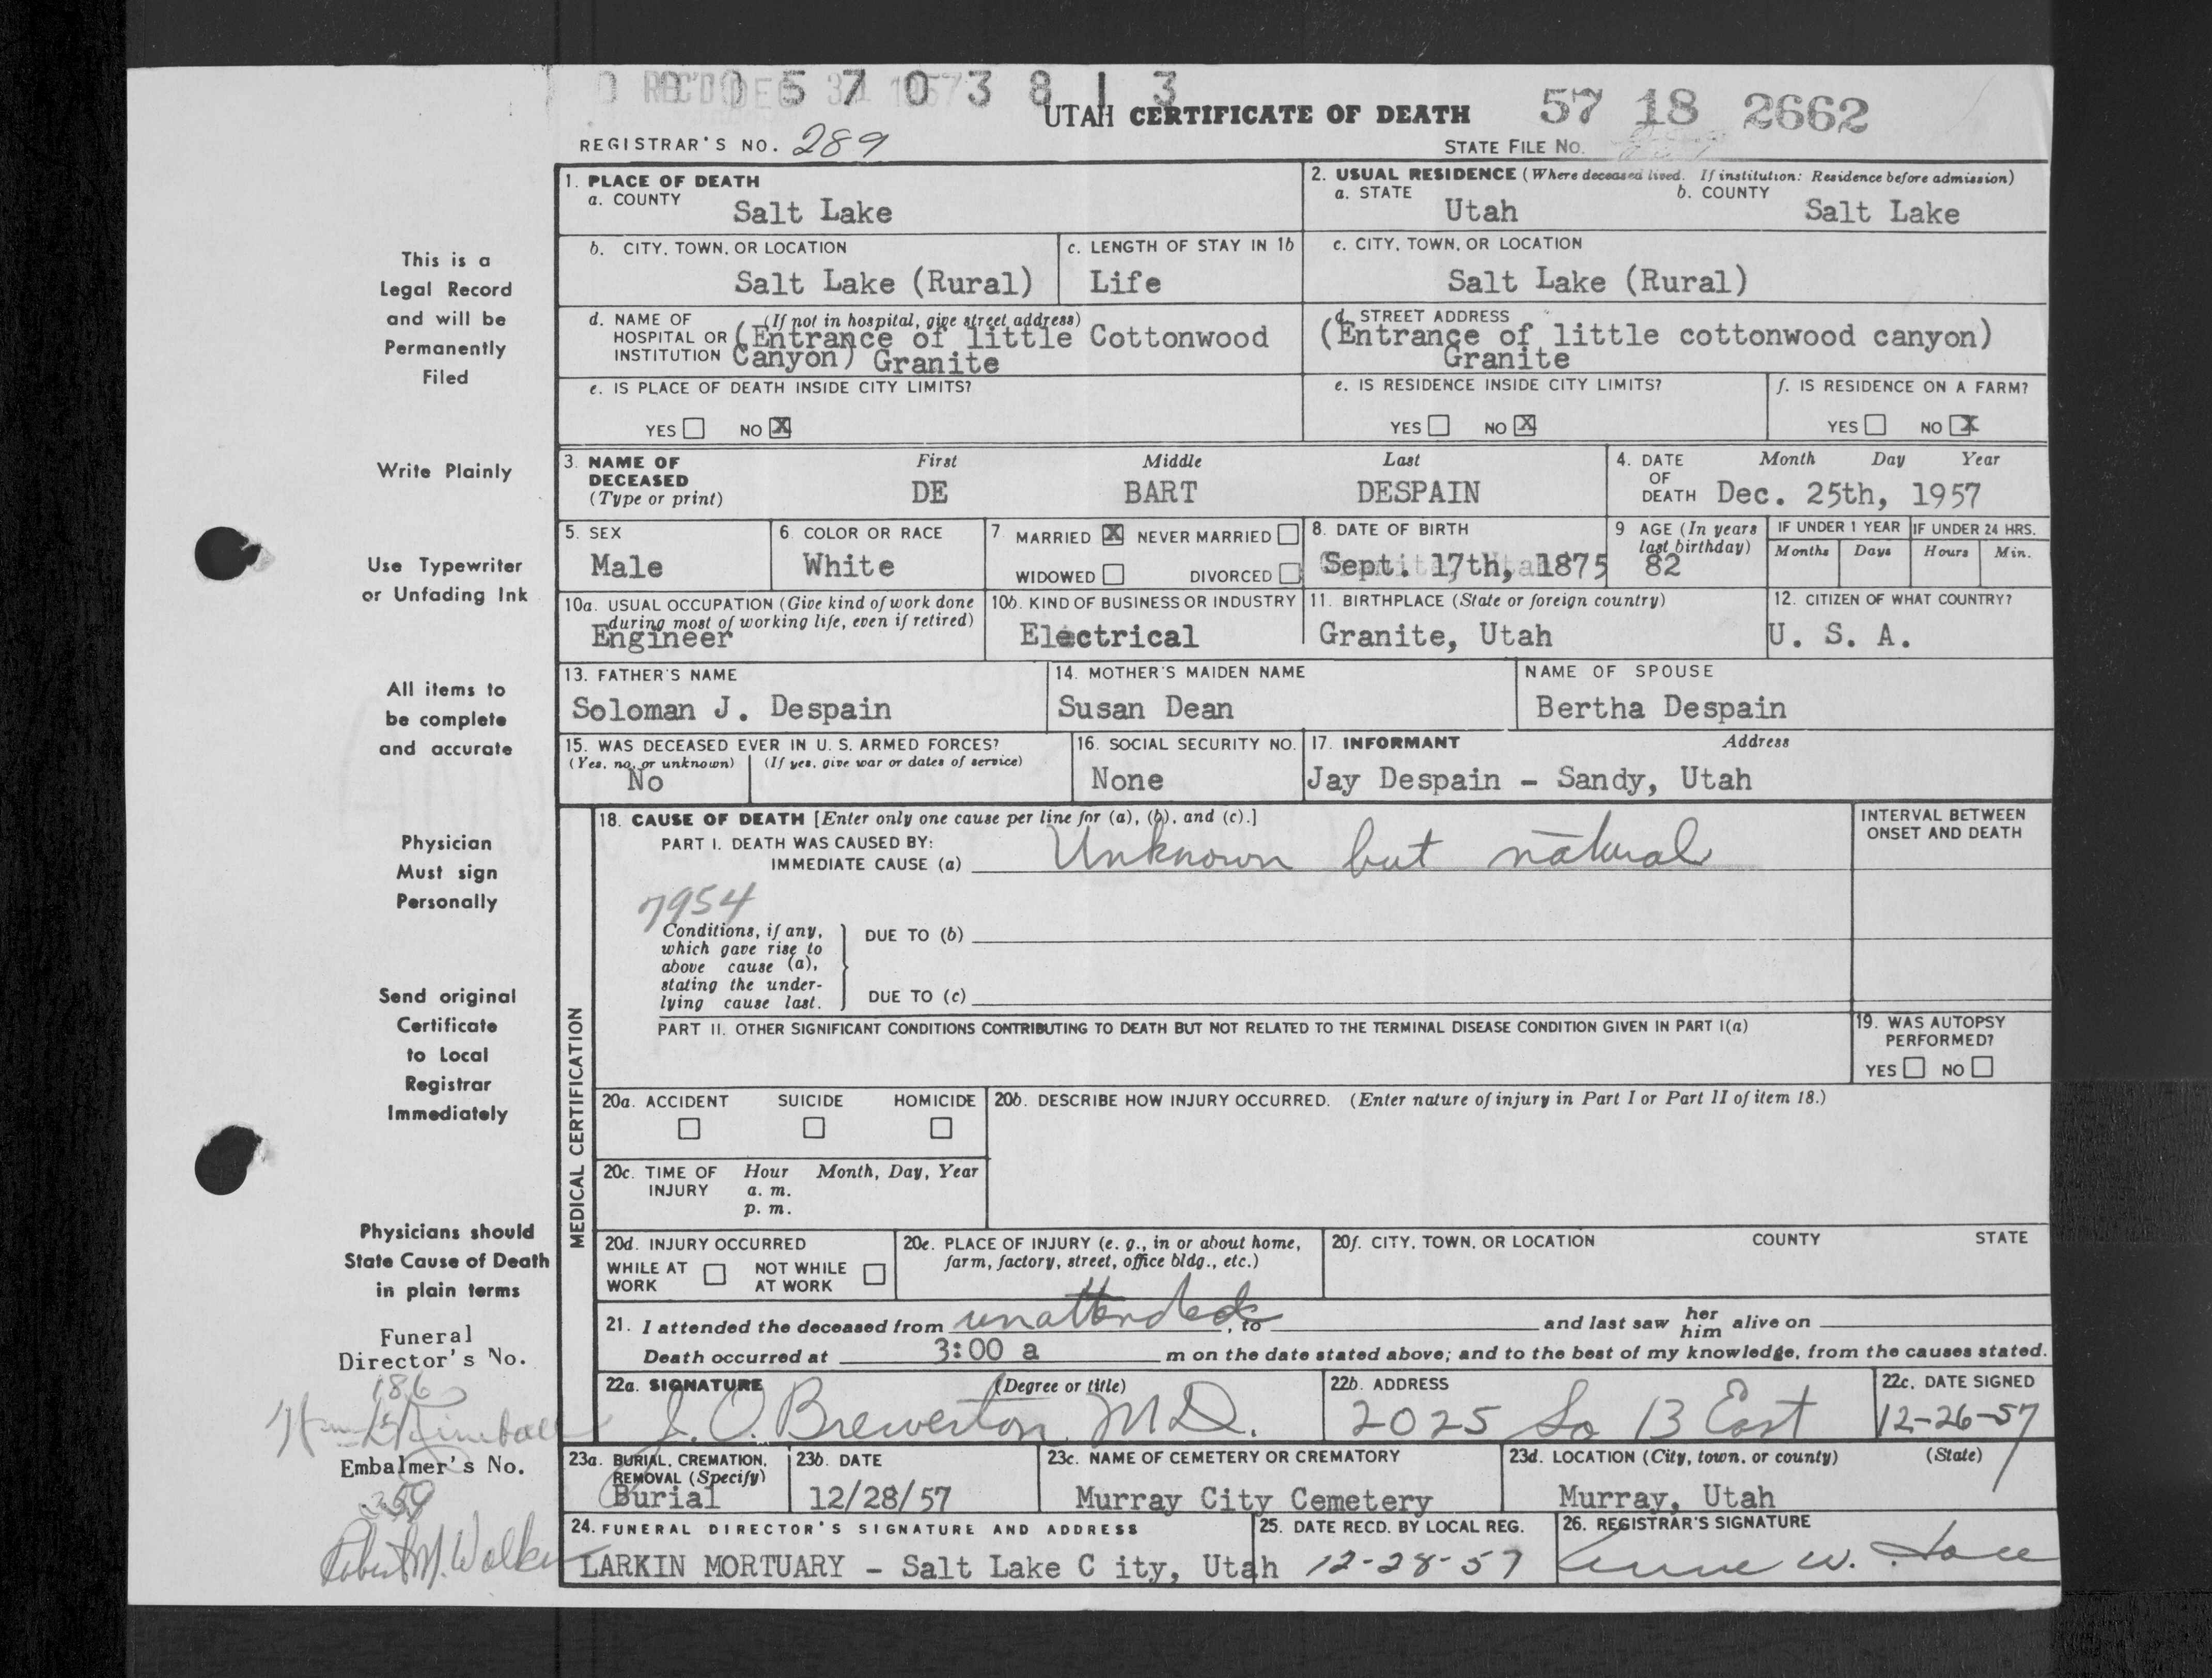 0 0 0 5 7 0 3 8 1 3
REC'D DEC 31 1957
UTAH CERTIFICATE OF DEATH 57 18 2662
REGISTRAR'S NO. 289 STATE FILE No.
1. PLACE OF DEATH
a. COUNTY
Salt Lake
2. USUAL RESIDENCE (Where deceased lived. If institution: Residence before admission)
a. STATE b. COUNTY
Utah Salt Lake
b. CITY, TOWN, OR LOCATION
Salt Lake (Rural)
c. LENGTH OF STAY IN 1b
Life
c. CITY, TOWN, OR LOCATION
Salt Lake (Rural)
d. NAME OF (If not in hospital, give street address)
HOSPITAL OR (Entrance of little Cottonwood
INSTITUTION Canyon) Granite
d. STREET ADDRESS
(Entrance of little cottonwood canyon)
Granite
e. IS PLACE OF DEATH INSIDE CITY LIMITS?
YES NO X
e. IS RESIDENCE INSIDE CITY LIMITS?
YES NO X
f. IS RESIDENCE ON A FARM?
YES NO X
3. NAME OF First Middle Last
DECEASED
(Type or print) DE BART DESPAIN
4. DATE Month Day Year
OF
DEATH Dec. 25th, 1957
5. SEX
Male
6. COLOR OR RACE
White
7. MARRIED X NEVER MARRIED
WIDOWED DIVORCED
8. DATE OF BIRTH
Sept. 17th, 1875
9 AGE (In years
last birthday)
82
IF UNDER 1 YEAR IF UNDER 24 HRS.
Months Days Hours Min.
10a. USUAL OCCUPATION (Give kind of work done
during most of working life, even if retired)
Engineer
10b. KIND OF BUSINESS OR INDUSTRY
Electrical
11. BIRTHPLACE (State or foreign country)
Granite, Utah
12. CITIZEN OF WHAT COUNTRY?
U. S. A.
13. FATHER'S NAME
Soloman J. Despain
14. MOTHER'S MAIDEN NAME
Susan Dean
NAME OF SPOUSE
Bertha Despain
15. WAS DECEASED EVER IN U. S. ARMED FORCES?
(Yes, no, or unknown) (If yes, give war or dates of service)
No
16. SOCIAL SECURITY NO.
None
17. INFORMANT Address
Jay Despain - Sandy, Utah
MEDICAL CERTIFICATION
18. CAUSE OF DEATH [Enter only one cause per line for (a), (b), and (c).]
PART I. DEATH WAS CAUSED BY:
IMMEDIATE CAUSE (a) Unknown but natural
INTERVAL BETWEEN
ONSET AND DEATH
7954
Conditions, if any,
which gave rise to
above cause (a),
stating the under-
lying cause last.
DUE TO (b)
DUE TO (c)
PART II. OTHER SIGNIFICANT CONDITIONS CONTRIBUTING TO DEATH BUT NOT RELATED TO THE TERMINAL DISEASE CONDITION GIVEN IN PART I(a)
19. WAS AUTOPSY
PERFORMED?
YES NO
20a. ACCIDENT SUICIDE HOMICIDE
20b. DESCRIBE HOW INJURY OCCURRED. (Enter nature of injury in Part I or Part II of item 18.)
20c. TIME OF Hour Month, Day, Year
INJURY a. m.
p. m.
20d. INJURY OCCURRED
WHILE AT NOT WHILE
WORK AT WORK
20e. PLACE OF INJURY (e. g., in or about home,
farm, factory, street, office bldg., etc.)
20f. CITY, TOWN, OR LOCATION COUNTY STATE
21. I attended the deceased from unattended, to and last saw her him alive on
Death occurred at 3:00 a m on the date stated above; and to the best of my knowledge, from the causes stated.
22a. SIGNATURE (Degree or title)
J. O. Brewerton M.D.
22b. ADDRESS
2025 So 13 East
22c. DATE SIGNED
12-26-57
23a. BURIAL, CREMATION,
REMOVAL (Specify)
Burial
23b. DATE
12/28/57
23c. NAME OF CEMETERY OR CREMATORY
Murray City Cemetery
23d. LOCATION (City, town, or county) (State)
Murray, Utah
24. FUNERAL DIRECTOR'S SIGNATURE AND ADDRESS
LARKIN MORTUARY - Salt Lake C ity, Utah
25. DATE RECD. BY LOCAL REG.
12-28-57
26. REGISTRAR'S SIGNATURE
W.
This is a
Legal Record
and will be
Permanently
Filed
Write Plainly
Use Typewriter
or Unfading Ink
All items to
be complete
and accurate
Physician
Must sign
Personally
Send original
Certificate
to Local
Registrar
Immediately
Physicians should
State Cause of Death
in plain terms
Funeral
Director's No.
186
Kimball
Embalmer's No.
359
Robert M. Walker